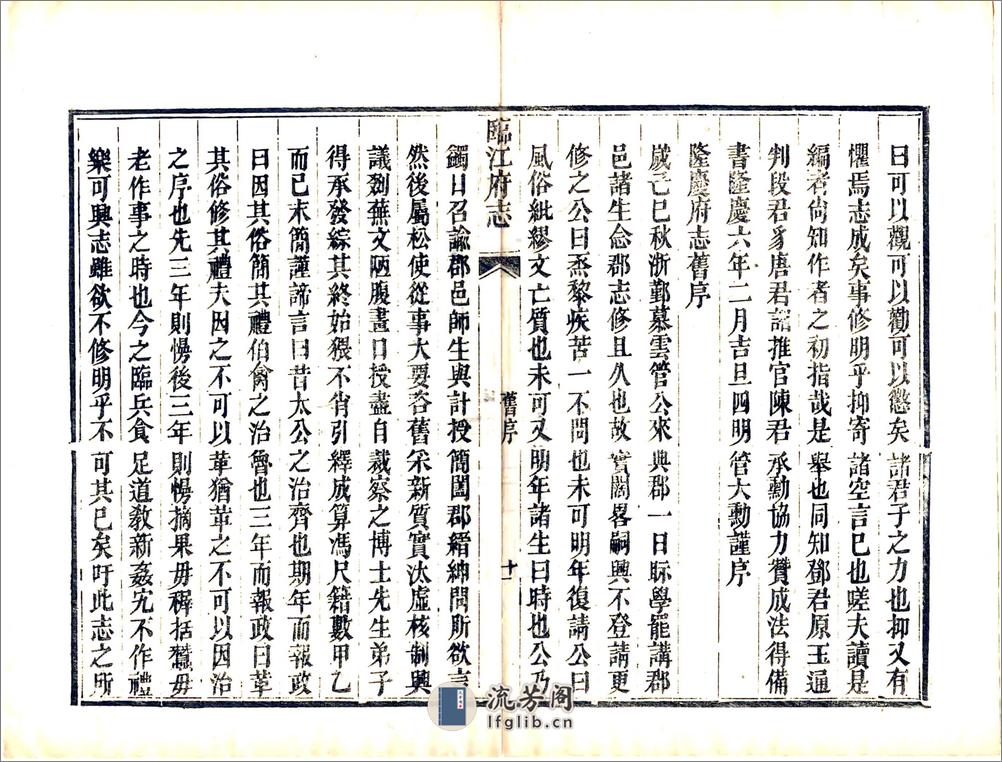 曰可以觀可以勸可以懲矣諸君子之力也抑又有
懼焉志成矣事修明乎抑寄諸空言已也嗟夫讀是
編者尚知作者之初指哉是舉也同知鄧君原玉通
判段君豸唐君詔推官陳君承勳協力贊成法得備
書隆慶六年二月吉旦四明管大勳謹序
隆慶府志舊序
歲己巳秋浙鄞慕雲管公來典郡一日眎學罷講郡
邑諸生念郡志修且久也故實闊畧嗣興不登請更
修之公曰烝黎疾苦一不問也未可明年復請公曰
風俗紕繆文亡質也未可又明年諸生曰時也公乃
臨江府志
舊序
十一
鐲日召諭郡邑師生與計授簡闔郡縉紳問所欲言
然後屬松使從事大要咨舊采新質實汰虛核制興
議剗蕪文陋腹畫口授盡自裁察之博士先生弟子
得承發綜其終始猥不肖引繹成算馮尺籍數甲乙
而已末簡謹諦言曰昔太公之治齊也期年而報政
曰因其俗簡其禮伯禽之治魯也三年而報政曰革
其俗修其禮夫因之不可以革猶革之不可以因治
之序也先三年則慢後三年則慢摘果毋穉括蠶毋
老作事之時也今之臨兵食足道敎新姦宄不作禮
樂可興志雖欲不修明乎不可其已矣吁此志之所
流芳阁
lfglib.cn